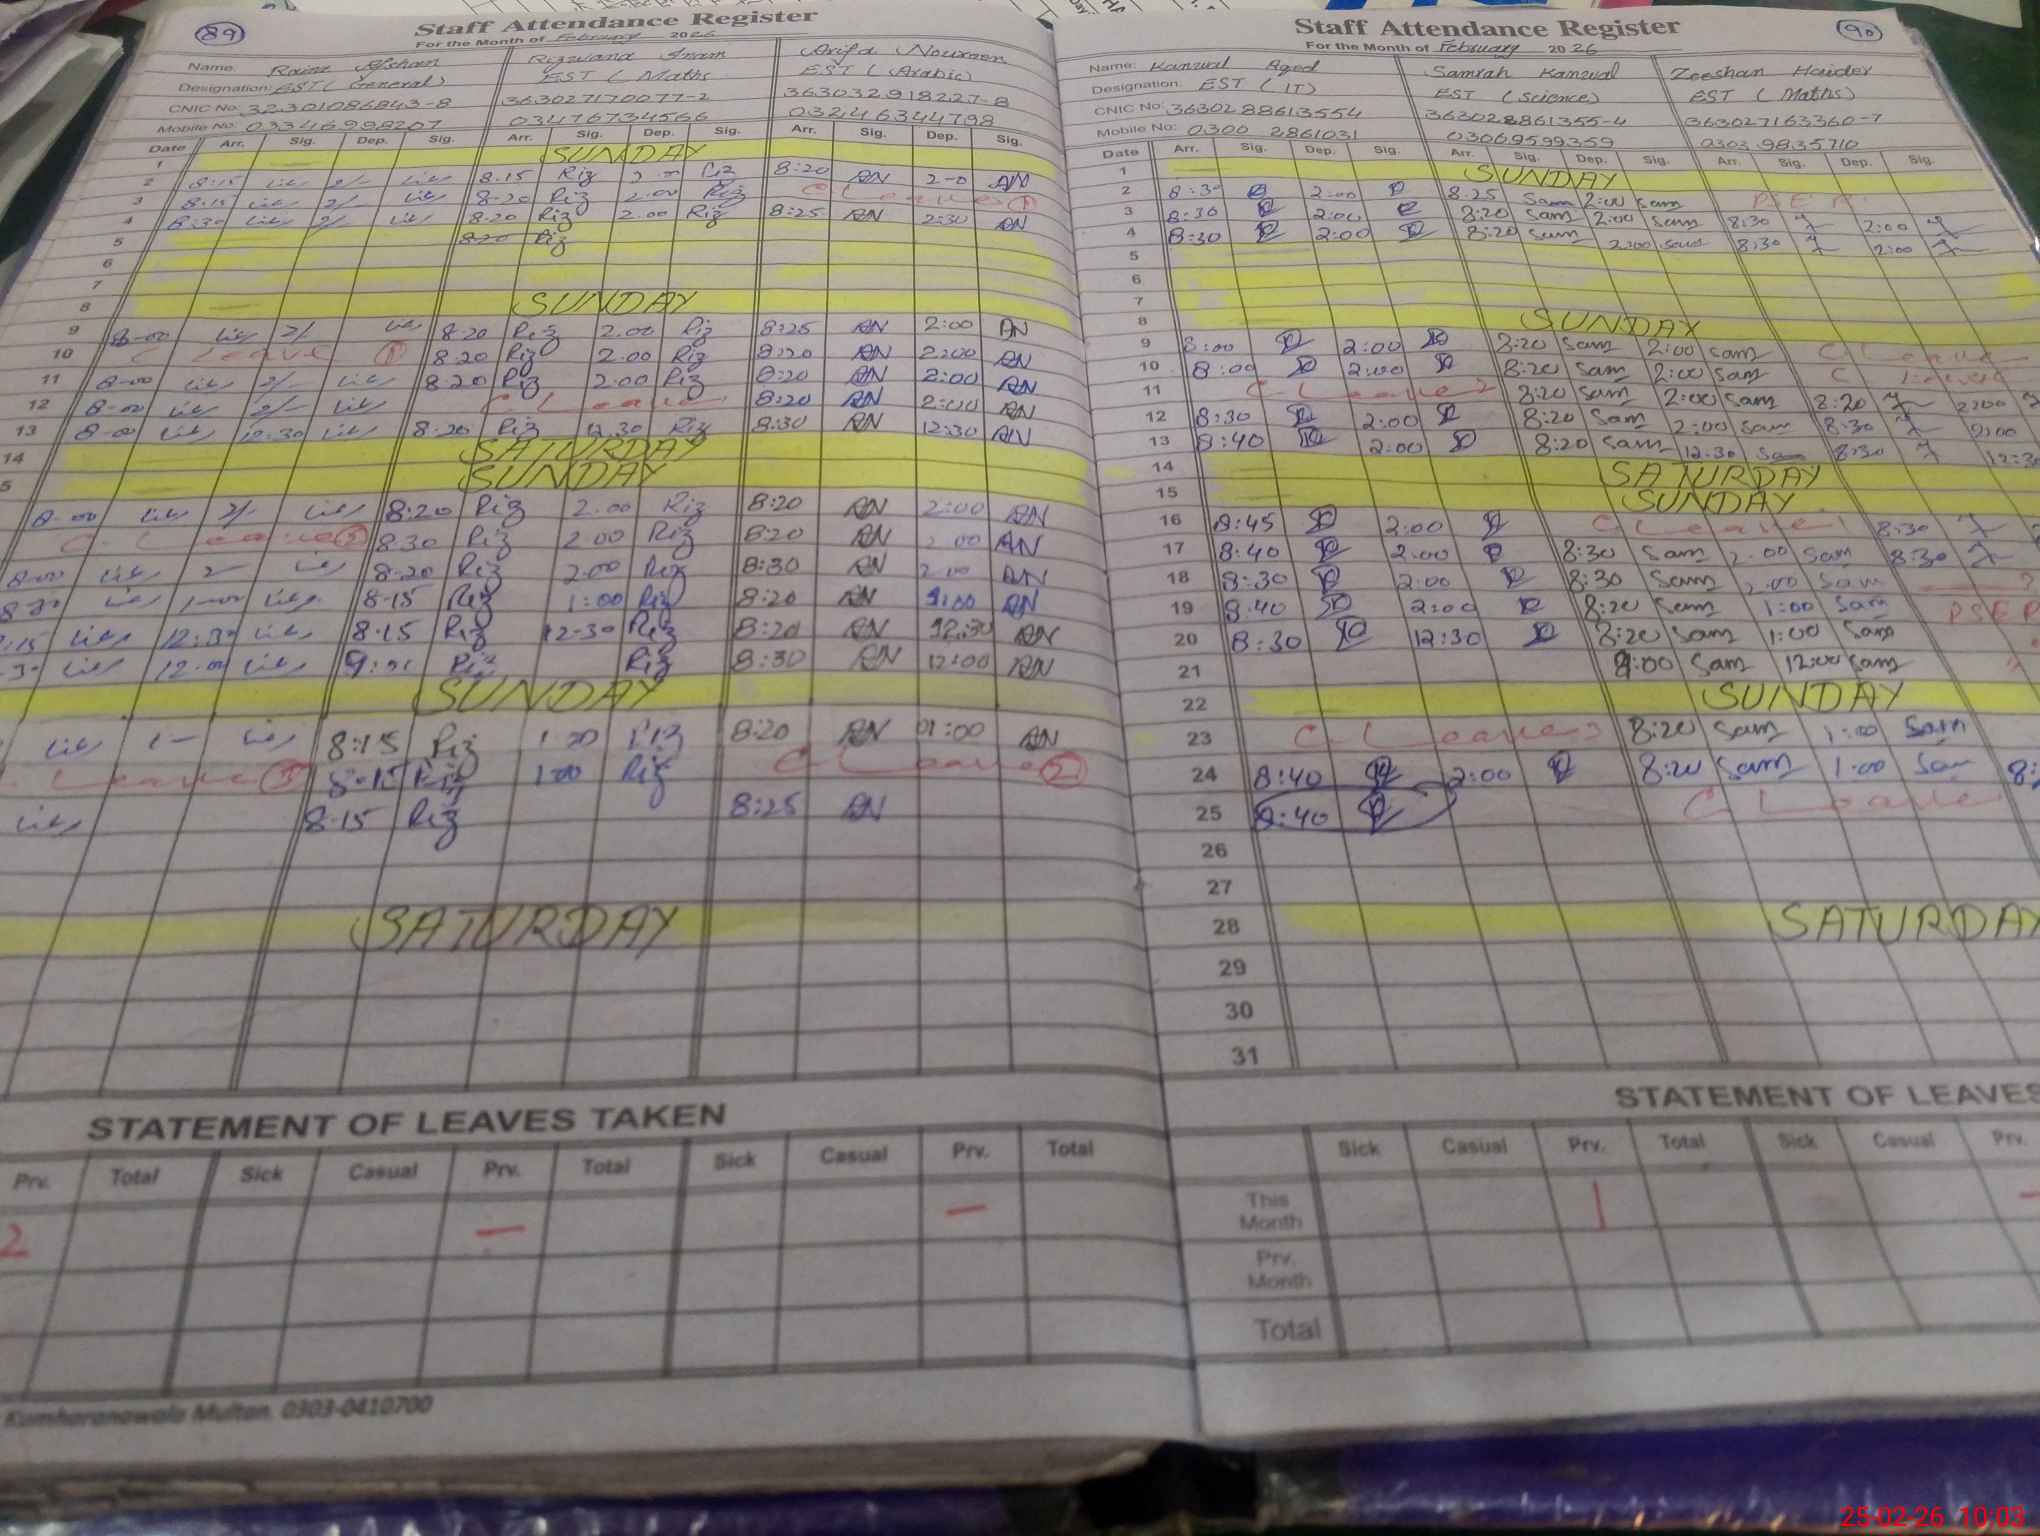 89
Staff Attendance Register
For the Month of February 2026
Name: Afshan Rizwana Arifa Noureen
Designation: EST (General) EST (Maths EST (Arabic)
CNIC No: 32301086843-8 363027170077-2 363032918227-8
Mobile No: 03346998207 03476734566 03246344798
Date Arr. Sig. Dep. Sig. Arr. Sig. Dep. Sig. Arr. Sig. Dep. Sig.
1 SUNDAY
2 8:15 2/- 8.15 Riz Riz 8:20 AN 2-0 AN
3 8:15 2/- 8-20 Riz 2.00 Riz C Leave 1
4 8:30 2/- 8.20 Riz 2.00 Riz 8:25 AN 2:30 AN
5 8.20 Riz
6
7
8 SUNDAY
9 8-00 2/- 8.20 Riz 2.00 Riz 8:25 AN 2:00 AN
10 C Leave 1 8.20 Riz 2.00 Riz 8:20 AN 2:00 AN
11 8-00 2/- 8.20 Riz 2.00 Riz 8:20 AN 2:00 AN
12 8-00 2/- C Leave 8:20 AN 2:00 AN
13 8-00 12:30 8.20 Riz 12.30 Riz 8:30 AN 12:30 AN
14 SATURDAY
5 SUNDAY
8-00 2/- 8:20 Riz 2.00 Riz 8:20 AN 2:00 AN
C. Leave 2 8.30 Riz 2.00 Riz 8:20 AN 2 00 AN
8-00 8-20 Riz 2.00 Riz 8:30 AN 2 00 AN
8-15 Riz 1:00 Riz 8:20 AN AN
:15 12:30 8.15 Riz 12-30 Riz 8:20 AN 12:30 AN
12.00 Riz Riz 8:30 AN 12:00 AN
SUNDAY
8:15 Riz Riz 8:20 AN 01:00 AN
Leave 3 8-15 Riz 1:00 Riz C Leave 2
8.15 Riz 8:25 AN
SATURDAY
STATEMENT OF LEAVES TAKEN
Prv. Total Sick Casual Prv. Total Sick Casual Prv. Total
2 — —
Kumharanawala Multan. 0303-0410700
90
Staff Attendance Register
For the Month of February 2026
Name: Kanwal Samrah Kanwal Zeeshan Haider
Designation: EST (IT) EST (Science) EST (Maths)
CNIC No: 3630288613554 363028861355-4 363027163360-7
Mobile No: 0300 2861031 03069599359 0303 9835710
Date Arr. Sig. Dep. Sig. Arr. Sig. Dep. Sig. Arr. Sig. Dep. Sig.
1 SUNDAY
2 8:30 2:00 8.25 Sam 2:00 Sam
3 8:30 2:00 8:20 Sam 2:00 Sam 8:30 2:00
4 8:30 2:00 8:20 Sam 2:00 Sam 8:30 2:00
5
6
7
8 SUNDAY
9 8:00 2:00 8:20 Sam 2:00 Sam C Leave
10 8:00 2:00 8:20 Sam 2:00 Sam C Leave
11 C Leave 2 8:20 Sam 2:00 Sam 8:20 2:00
12 8:30 2:00 8:20 Sam 2:00 Sam 8:30 2:00
13 8:40 2:00 8:20 Sam 12:30 Sam 8:30 12:3
14 SATURDAY
15 SUNDAY
16 8:45 2:00 C Leave 1 8:30
17 8:40 2:00 8:30 Sam 2.00 Sam 8:30
18 8:30 2:00 8:30 Sam 2.00 Sam
19 8:40 2:00 8:20 Sam 1:00 Sam
20 8:30 12:30 8:20 Sam 1:00 Sam
21 9:00 Sam 12:00 Sam
22 SUNDAY
23 C Leave 3 8:20 Sam 1:00 Sam
24 8:40 2:00 8:20 Sam 1:00 Sam 8:
25 8:40 C Leave
26
27
28 SATURDAY
29
30
31
STATEMENT OF LEAVES
Sick Casual Prv. Total Sick Casual Prv.
This Month 1
Prv. Month
Total
25-02-26 10:03